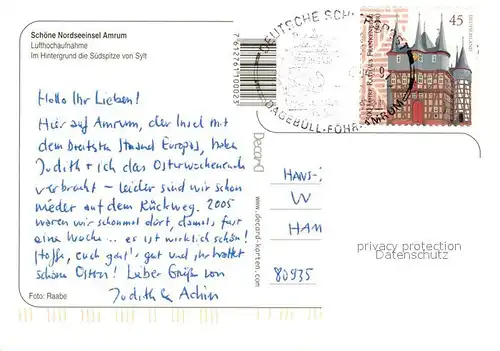 Schöne Nordseeinsel Amrum
Lufthochaufnahme
Im Hintergrund die Südspitze von Sylt
Hallo Ihr Lieben!
Hier auf Amrum, der Insel mit
dem Strand Europas, haben
Judith + ich das Osterwochenende
verbracht – leider sind wir schon
wieder auf dem Rückweg. 2005
waren wir schonmal dort, damals für
eine Woche .. es ist wirklich schön!
Hoffe, euch geht's gut und ihr hattet
schöne Ostern! Liebe Grüße von
Judith & Achim
Foto: Raabe
7612761100023
Decard
www.decard-karten.com
DEUTSCHE SCHI
DAGEBÜLL-FÖHR-AMRUM
45
DEUTSCHLAND
HANS-
W
HAM
80935
privacy protection
Datenschutz